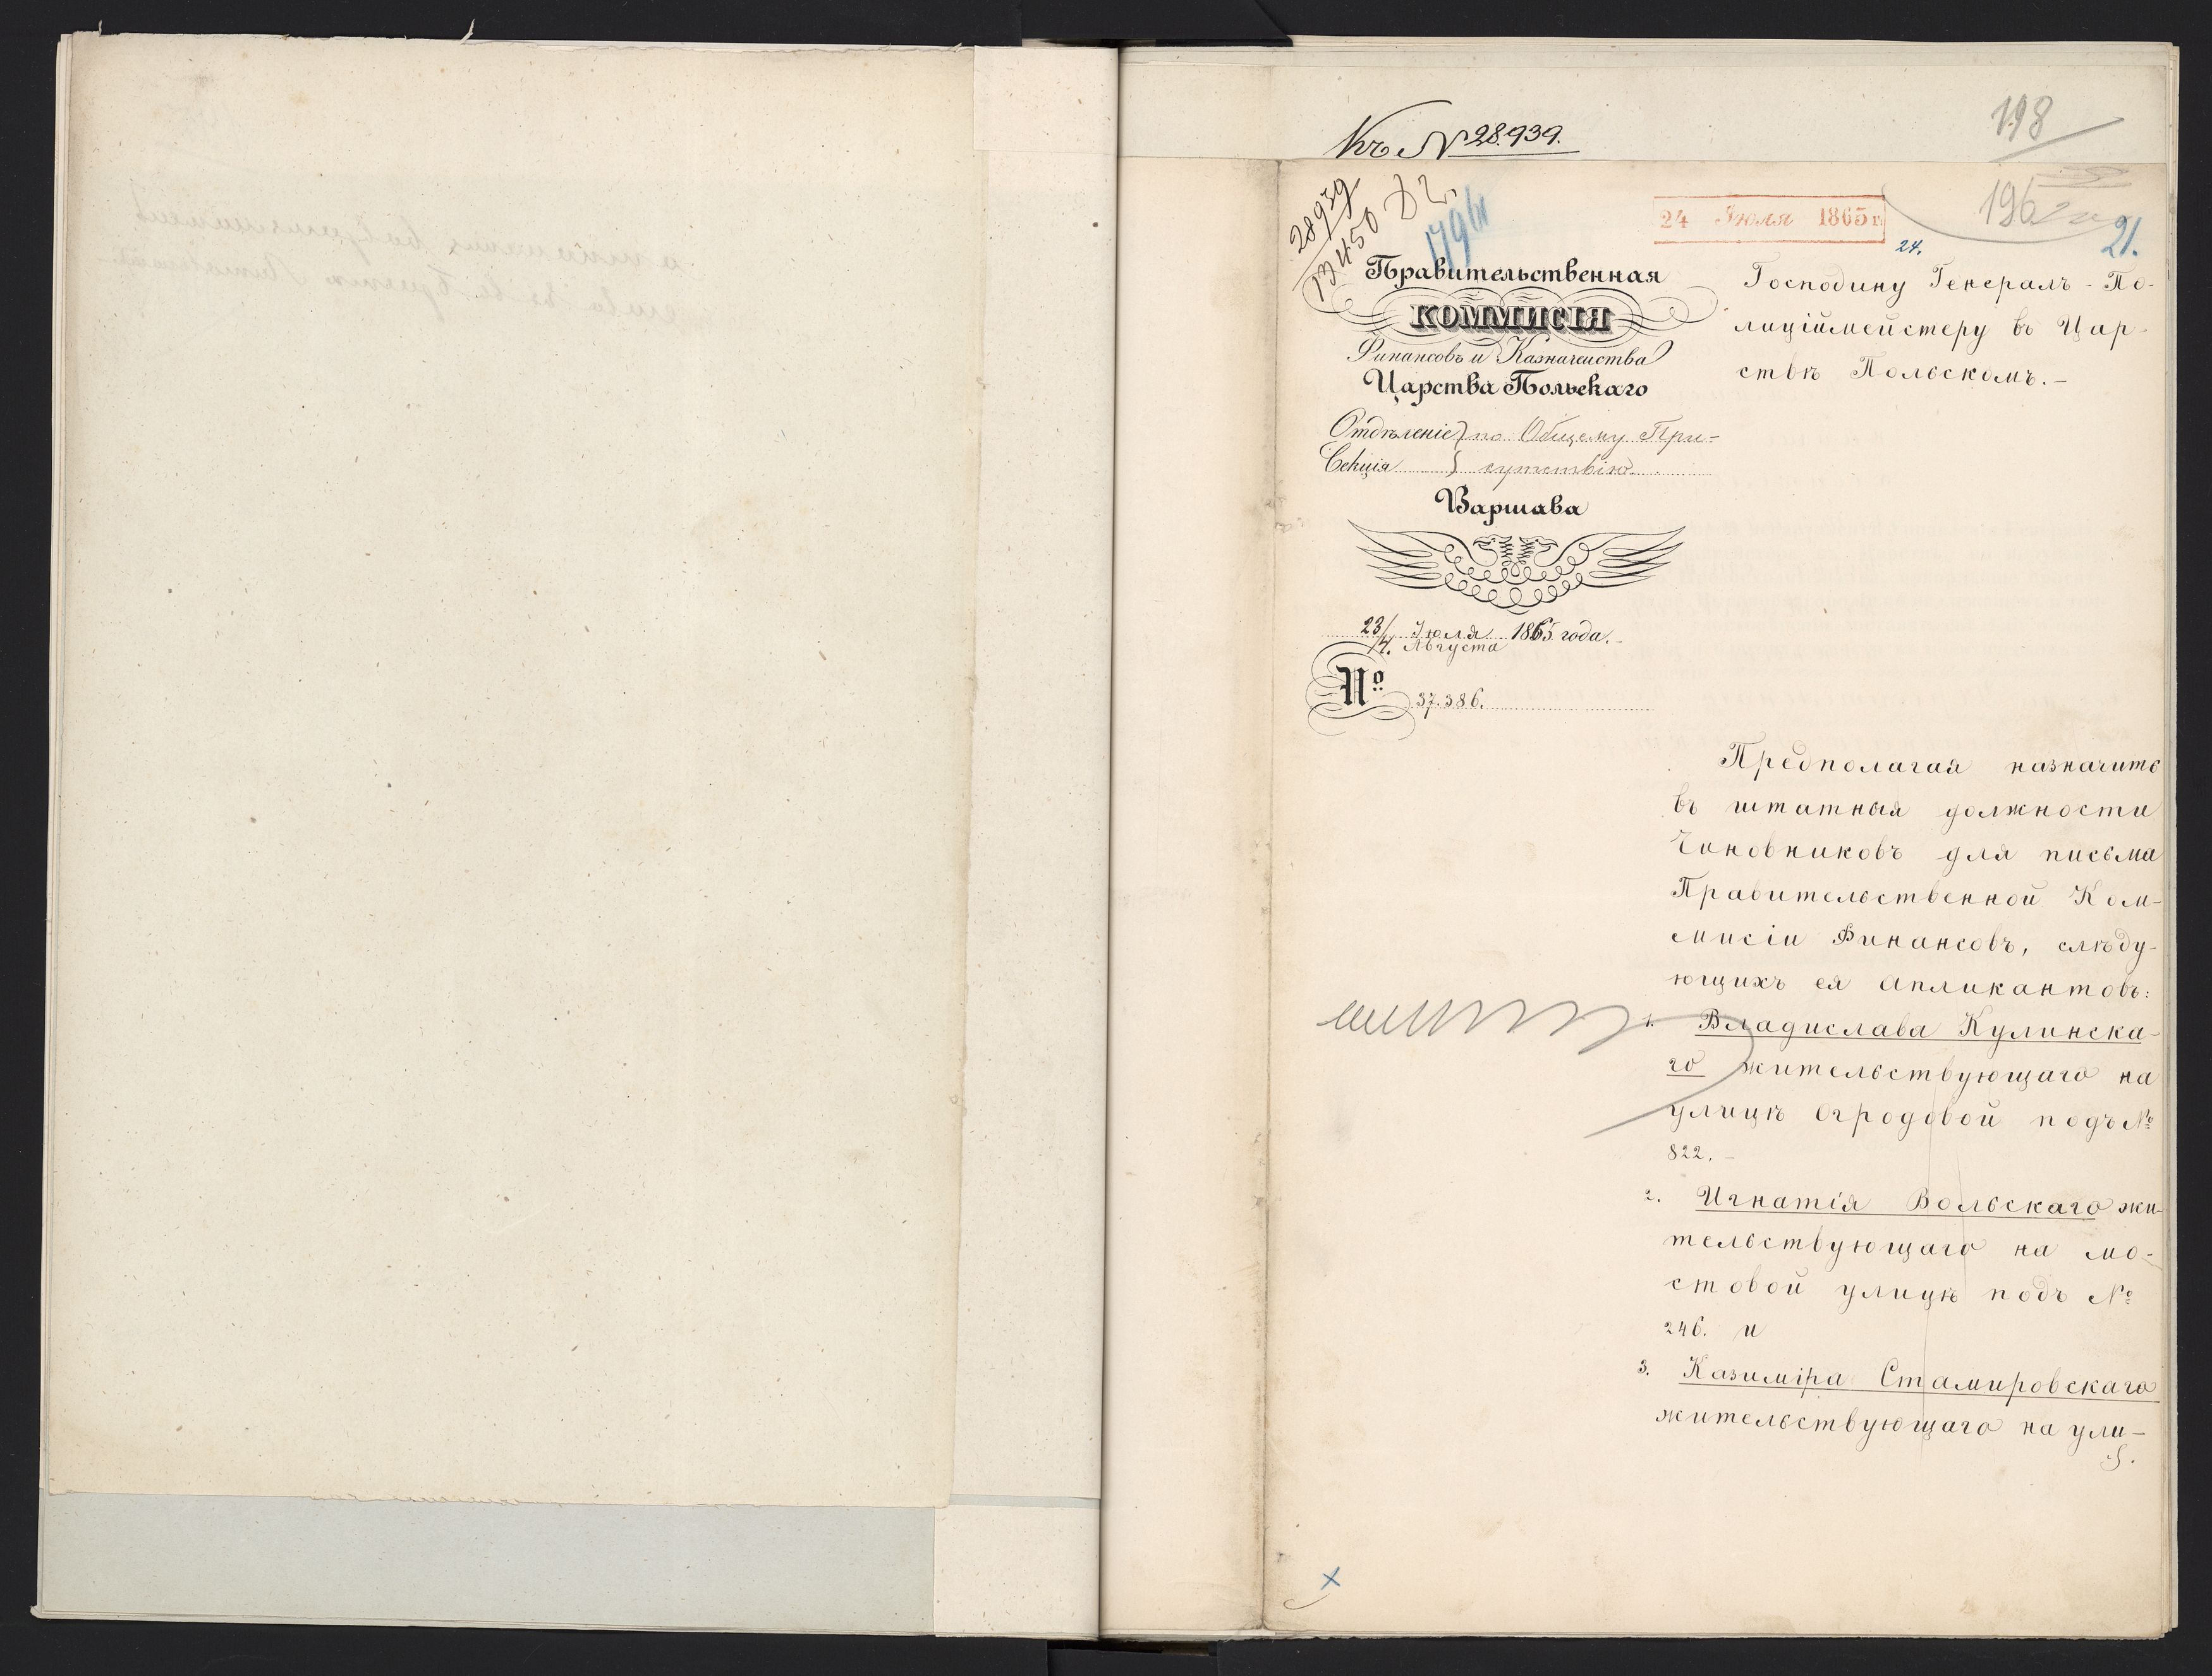 Къ № 28.939.
198
28939
13450
196
21.
24 Іюля 1865 г.
24.
Правительственная
КОММИСІЯ
Финансовъ и Казначейства
Царства Польскаго
Отдѣленіе } по Общему При-
Секція } сутствію.
Варшава
23/4. Іюля/Августа 1865 года.
№ 37.386.
Господину Генералъ-По-
лиціймейстеру въ Цар-
ствѣ Польскомъ.-
Предполагая назначить
въ штатныя должности
Чиновниковъ для письма
Правительственной Ком-
мисіи Финансовъ, слѣду-
ющихъ ея апликантовъ:
1. Владислава Кулинска-
го жительствующаго на
улицѣ Огродовой подъ №
822.-
2. Игнатія Вольскаго жи-
тельствующаго на мо-
стовой улицѣ подъ №
246. и
3. Казиміра Стамировскаго
жительствующаго на ули-